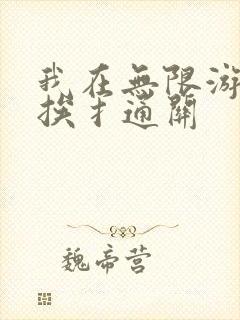 我在無限游
挨扌通關
魏帝营